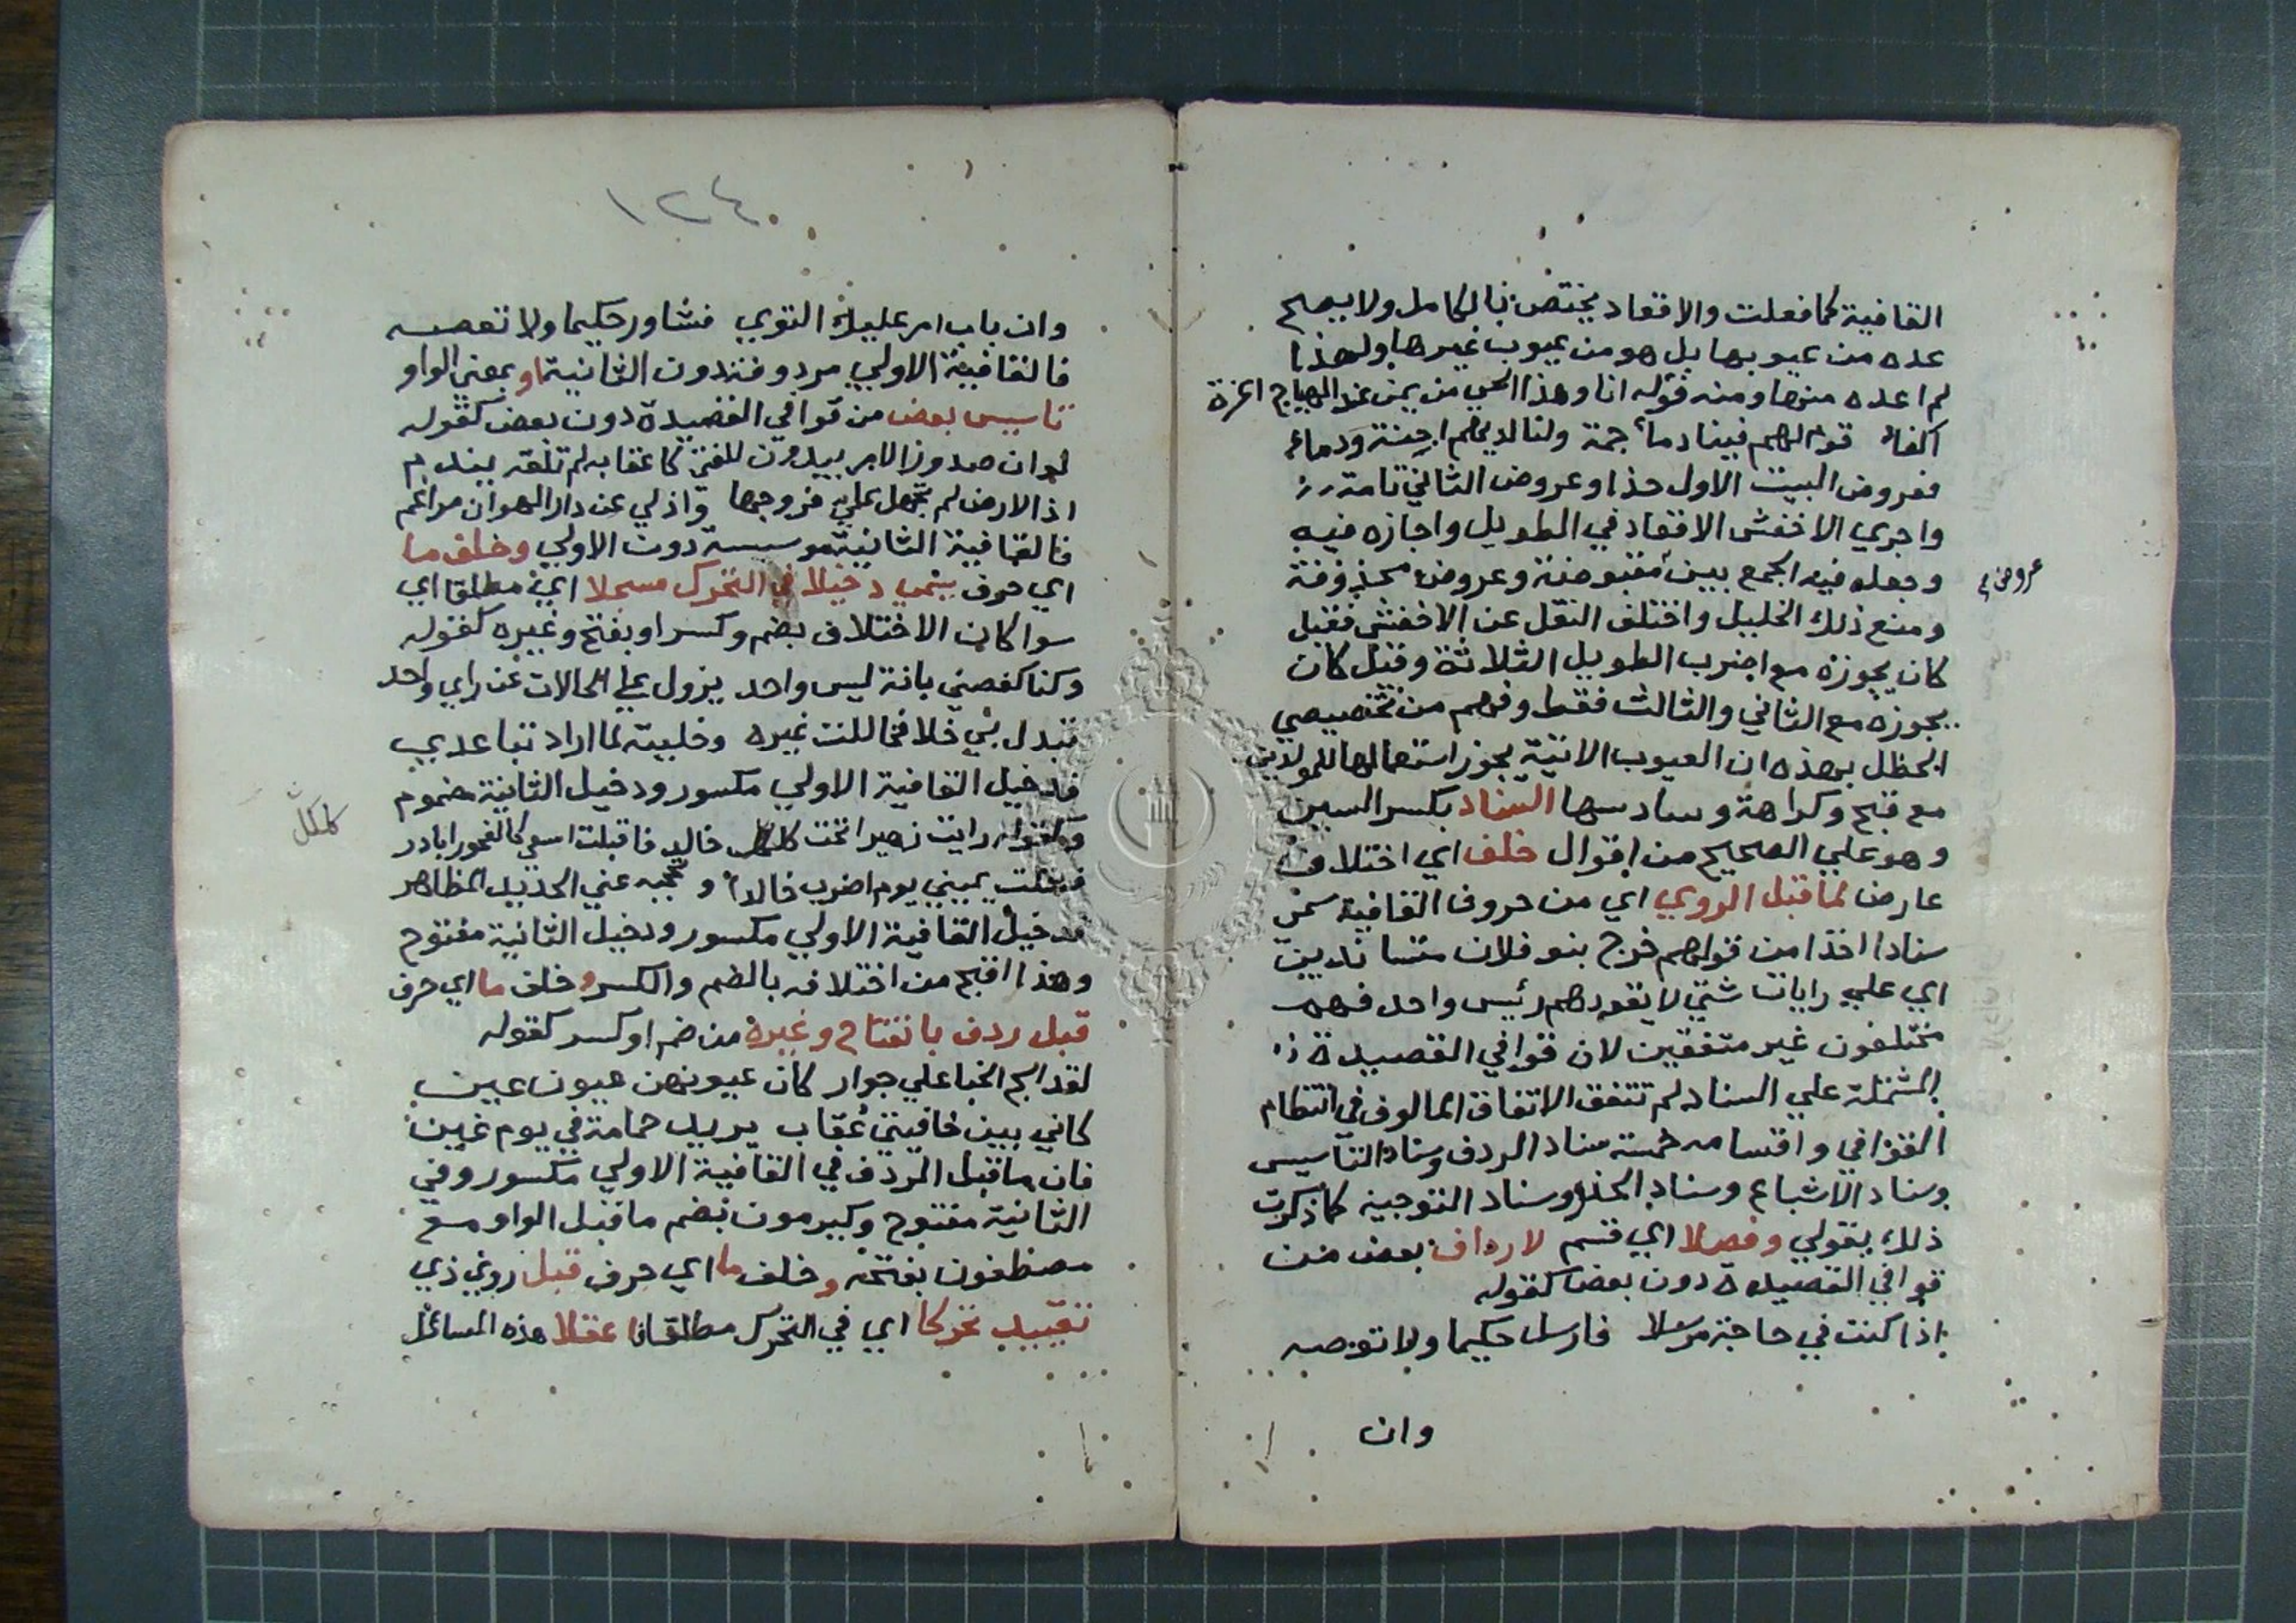 القافية كما فعلت والاقعاد يختص بالكامل ولا يصح
عده من عيوبها بل هو من عيوب غيرها ولهذا
لم اعده منها ومنه قوله انا وهذا الحي من يمن عند الهياج اعزة
اكفاء قوم لهم فينا دماء جمة ولنا لديهم احنة ودماء
فعروض البيت الاول حذا وعروض الثاني تامة
واجري الاخفش الاقعاد في الطويل واجازه فيه
وجعله فيه الجمع بين مقبوضة وعروض محذوفة
عروض
ومنع ذلك الخليل واختلف النقل عن الاخفش فقيل
كان يجوزه مع اضرب الطويل الثلاثة وقيل كان
يجوزه مع الثاني والثالث فقط وفهم من تخصيصي
الحظل بهذه ان العيوب الاتية يجوز استعمالها للمولدين
مع قبح وكراهة وسادسها السناد بكسر السين
وهو علي الصحيح من اقوال خلف اي اختلاف
عارض لما قبل الروي اي من حروف القافية سمي
سنادا اخذا من قولهم خرج بنو فلان متساندين
اي علي رايات شتي لا يقودهم رئيس واحد فهم
مختلفون غير متفقين لان قوافي القصيدة
المشتملة علي السناد لم تتفق الاتفاق المالوف في انتظام
القوافي واقسامه خمسة سناد الردف وسناد التاسيس
وسناد الاشباع وسناد الحذو وسناد التوجيه كما ذكرت
ذلك بقولي وفصلا اي قسم لارداف بعض من
قوافي القصيدة دون بعض كقوله
اذا كنت في حاجة مرسلا فارسل حكيما ولا توصه
وان
١٢٤
وان باب امر عليك التوي فشاور حكيما ولا تعصه
فالقافية الاولي مردوفة دون الثانية او بمعني الواو
تاسيس بعض من قوافي القصيدة دون بعض كقوله
لو ان صدور الامر يبدون للفتي كاعقابه لم تلقه يندم
اذ الارض لم تجهل علي فروجها واذ لي عن دار الهوان مراغم
فالقافية الثانية موسسة دون الاولي وخلف ما
اي حرف ينمي دخيلا في التحرك مسجلا اي مطلقا اي
سوا كان الاختلاف بضم وكسر او بفتح وغيره كقوله
وكنا كغصني بانة ليس واحد يزول علي الحالات عن راي واحد
تبدل بي خلا فخاللت غيره وخليته لما اراد تباعدي
فدخيل القافية الاولي مكسور ودخيل الثانية مضموم
وكقوله رايت زهيرا تحت كلكل خالد فاقبلت اسعي كالعجور ابادر
كلكل
فشلت يميني يوم اضرب خالدا ويحجبه عني الحديد المظاهر
فدخيل القافية الاولي مكسور ودخيل الثانية مفتوح
وهذا اقبح من اختلافه بالضم والكسر وخلف ما اي حرف
قبل ردف بانفتاح وغيره من ضم او كسر كقوله
لقد الج الخبا علي جوار كان عيونهن عيون عين
كاني بين خافيتي عقاب يريد حمامة في يوم غين
فان ما قبل الردف في القافية الاولي مكسور وفي
الثانية مفتوح وكيرمون بضم ما قبل الواو مع
مصطفون بفتحه وخلف ما اي حرف قبل روي ذي
تقييد تحركا اي في التحرك مطلقا عقلا هذه المسائل